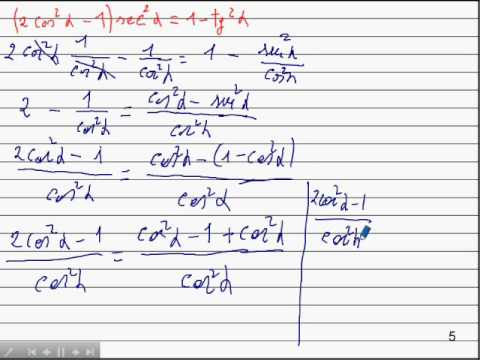 (2cos²α - 1) sec²α = 1 - tg²α
2cos²α · 1/cos²α - 1/cos²α = 1 - sen²α/cos²α
2 - 1/cos²α = (cos²α - sen²α)/cos²α
(2cos²α - 1)/cos²α = (cos²α - (1 - cos²α))/cos²α
(2cos²α - 1)/cos²α = (cos²α - 1 + cos²α)/cos²α
(2cos²α - 1)/cos²α
5